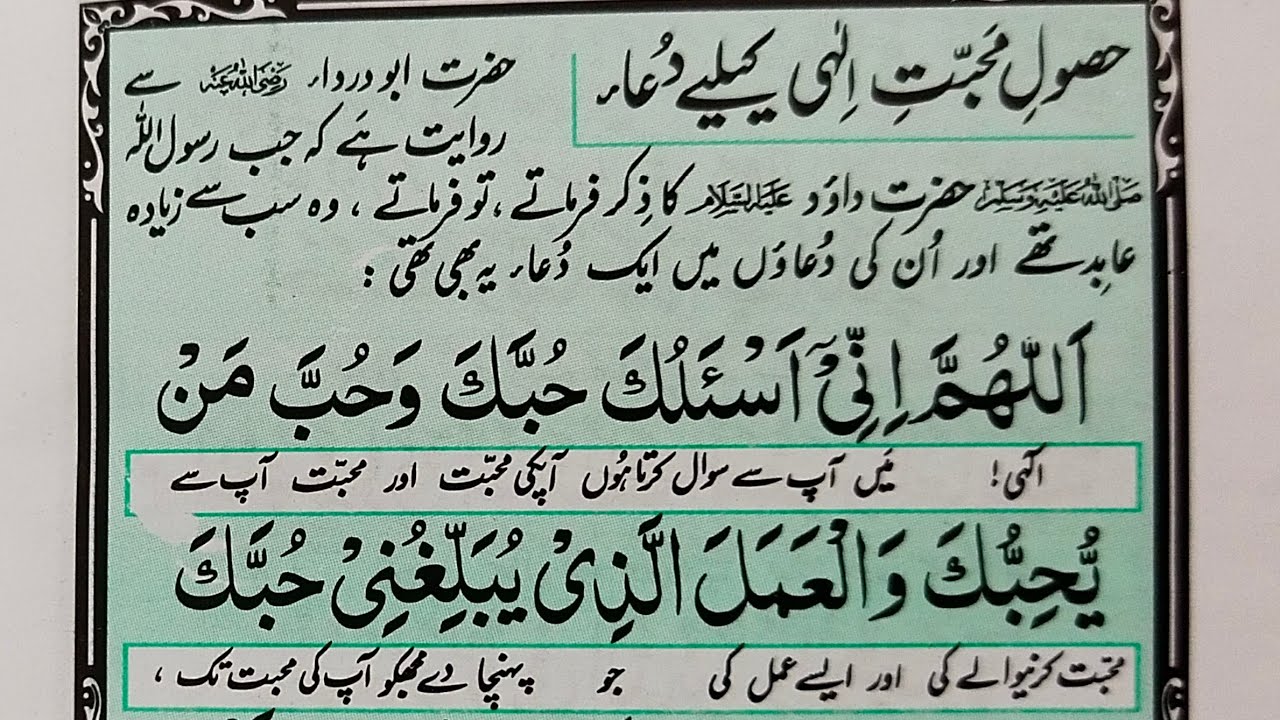 حصولِ مَحبّتِ اِلٰہی کیلیے دُعاء
حضرت ابو درداء رَضِیَ اللہُ عَنْہُ سے
روایت ہَے کہ جب رسول اللہ
صَلَّی اللہُ عَلَیْہِ وَسَلَّمَ حضرت داؤد عَلَیْہِ السَّلَام کا ذِکر فرماتے ، تو فرماتے ، وہ سب سے زیادہ
عابِد تھے اور اُن کی دُعاؤں میں ایک دُعاء یہ بھی تھی :
اَللّٰهُمَّ اِنِّیْۤ اَسْئَلُكَ حُبَّكَ وَحُبَّ مَنْ
الٰہی! مَیں آپ سے سوال کرتا ہُوں آپکی محبّت اور محبّت آپ سے
یُّحِبُّكَ وَالْعَمَلَ الَّذِیْ یُبَلِّغُنِیْ حُبَّكَ
محبّت کرنیوالے کی اور ایسے عمل کی جو پہنچا دے مجھکو آپ کی محبت تک ،